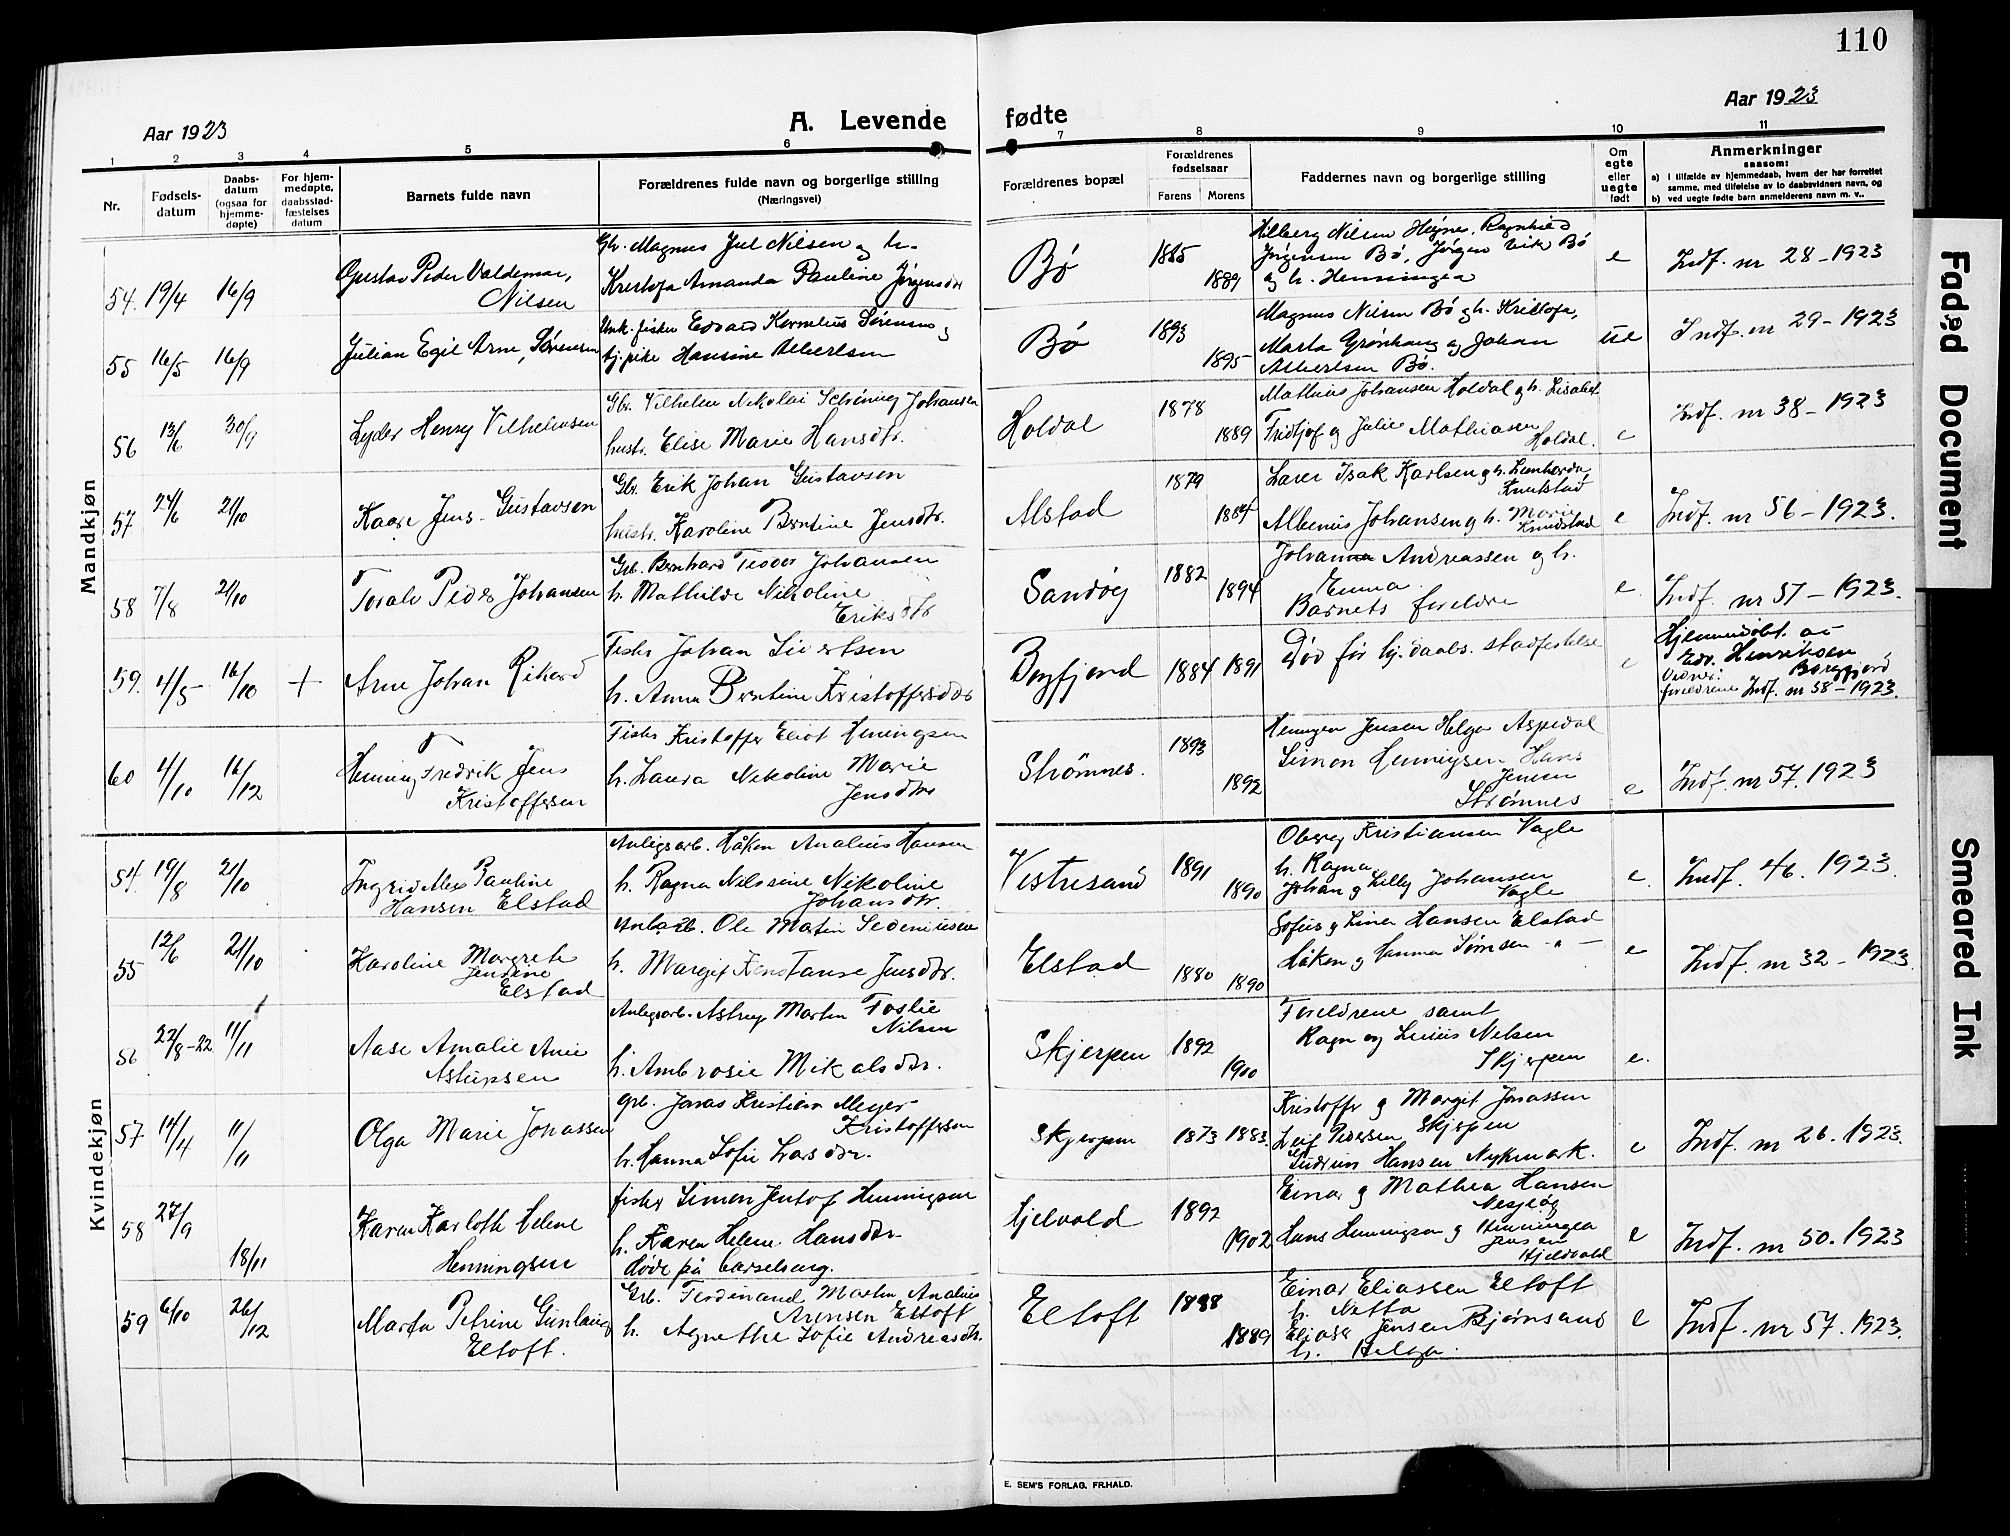 110
Aar 1923
A. Levende
fødte
Aar 1923
1 2 3 4 5 6 7 8 9 10 11
Nr.
Fødsels-
datum
Daabs-
datum
(ogsaa for
hjemme-
døpte)
For hjem-
medøpte,
daabsstad-
fæstelses
datum
Barnets fulde navn
Forældrenes fulde navn og borgerlige stilling
(Næringsvei)
Forældrenes bopæl
Forældrenes
fødselsaar
Farens Morens
Faddernes navn og borgerlige stilling
Om
egte
eller
uegte
født
Anmerkninger
saasom:
a) i tilfælde av hjemmedaab, hvem der har forrettet
samme, med tilføielse av to daabsvidners navn, og
b) ved uegte fødte barn anmelderens navn m. v..
Mandkjøn
54. 19/4 16/9
Gustav Peder Valdemar,
Nilsen
Gb. Magnus Jul Nilsen og h.
Kristofa Amanda Pauline Jørgensdtr
Bø
1885
1889
Hilberg Nilsen Høynes, Ragnhild
Jørgensen Bø, Jørgen Vik Bø
og h. Henningea
e
Indf. nr 28-1923
55 16/5 16/9
Julian Egil Arne, Sørensen
Unk. fisker Edvard Kornelius Sørensen og
tj.pike Hansine Albertsen
Bø
1893
1895
Magnus Nilsen Bø og h. Kristofa,
Marta Grønhaug og Johan
Albertsen Bø.
ue
Indf. nr 29-1923
56 13/6 30/9
Lyder Henry Vilhelmsen
Gbr. Vilhelm Nikolai Schöning Johansen
hustr. Elise Marie Hansdtr.
Holdal
1878
1889
Mathias Johansen Holdal og h. Lisabet
Fridtjof og Julie Mathiasen
Holdal.
e
Indf. nr 38-1923
57. 24/6 21/10
Kaare Jens Gustavsen
Gbr. Erik Johan Gustavsen
hustr. Karoline Berntine Jensdtr.
Alstad
1879
1884
Lærer Isak Karlsen og h. Leonharda
Knutstad
Albenius Johansen og h. Marie
Knudstad
e
Indf. nr 56-1923.
58 7/8 21/10
Toralv Peder Johansen
Gb. Bernhard Teodor Johansen
h. Mathilde Nikoline
Eriksdtr
Sandøy
1882
1894
Johan Andreassen og h.
Emma
Barnets foreldre
e.
Indf. nr 57-1923.
59. 4/5 16/10 +
Arne Johan Rikard
Fisker Johan Sivertsen
h. Anna Berntine Kristoffersdtr
Borgfjord
1884 1891
Død før hj.daabs. stadfestelse
e
Hjemmedøbt av
Edv. Henriksen
Borgfjord
Vidner:
foreldrene Indf. nr 58-1923.
60 4/10 16/12
Henning Fredrik Jens
Kristoffersen
Fisker Kristoffer Eliot Henningsen
h. Laura Nikoline Marie
Jensdtr
Strømnes.
1893
1892
Henningea Jensen Helga Aspedal
Simon Henningsen Hans
Jensen
Strømnes
e
Indf. nr 57. 1923
Kvindekjøn
54. 19/8 21/10
Ingrid Pauline
Hansen Elstad
Anlegsarb. Håken Analius Hansen
h. Ragna Nilssine Nikoline
Johansdtr.
Vestresand
1891
1890
Kristiansen Vagle
h. Ragna
Johan og Lilly Johansen
Vagle
e.
Indf. 46. 1923.
55 12/6 21/10
Karoline Margreth
Jensine
Elstad
Ole Martin Sedeniusen
h. Margit Konstanse Jensdtr.
Elstad
1880
1890
Sofus og Lina Hansen Elstad
Håken og Hanna Simonsen -"-
e
Indf. nr 32-1923.
56 22/8-22 11/11
Aase Amalie Anie
Astupsen
Anlegsarb. Astrup Martin Foslie
Nilsen
h. Ambrosie Mikalsdtr.
Skjerpen
1892
1900
Foreldrene samt
Ragn og Lucius Nilsen
Skjerpen
e.
57 14/4 11/11
Olga Marie Jonassen
Grb. Jonas Kristian Meyer
Kristoffersen
h. Hanna Sofie Larsdtr.
Skjerpen
1873 1883.
Kristoffer og Margit Jonassen
Leif Pedersen Skjerpen
Gudrun Hansen Nykmark.
e
Indf. nr 26. 1923.
58 27/9 18/11
Karen Karlotte Helene
Henningsen
fisker Simon Jentof Henningsen
h. Karen Helene Hansdtr
døde på barselseng.
Hjelvold
1892
1902
Einar og Mathea Hansen
Nesjeøy
Hans Henningsen og Henningea
Jensen
Hjeldvold
e
Indf. nr 50. 1923
59 6/10 26/12
Marta Petrine Gunlaug
Eltoft.
Grb. Ferdinand Martin Analius
Arensen Eltoft
h. Agnethe Sofie Andreasdtr.
Eltoft
1888
1889
Einar Eliassen Eltoft
h. Netta
Elias Jensen Bjørnsand
h. Helga.
e
Indf. nr 57. 1923.
E. SEM'S FORLAG, FR.HALD.
Faded Document
Smeared Ink